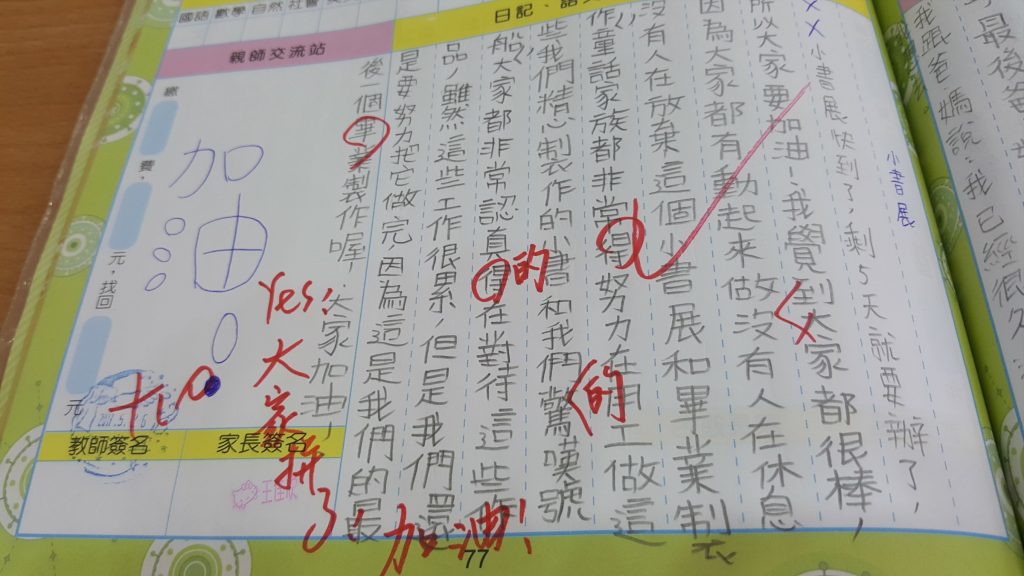 我跟爸媽說:我已經很久
最後爸
小書展
小書展快到了,剩5天就要辦了,
所以大家要加油!我覺到大家都很棒,
因為大家都有動起來做沒有人在休息
沒有人在放棄這個小書展和畢業製
作,童話家族都非常得努力在用工做這
的
些我們精心制作的小書和我們驚嘆號
船,大家都非常認真得在對待這些作
的
品,雖然這些工作很累,但是我們還
是要努力把它做完因為這是我們的最
後一個畢業製作喔!大家加油!
Yes,
大家拼了!
加油!
國語 數學 自然 社會
日記、語
親師交流站
繳
費,
元,找回
元
加油!
教師簽名
家長簽名
77